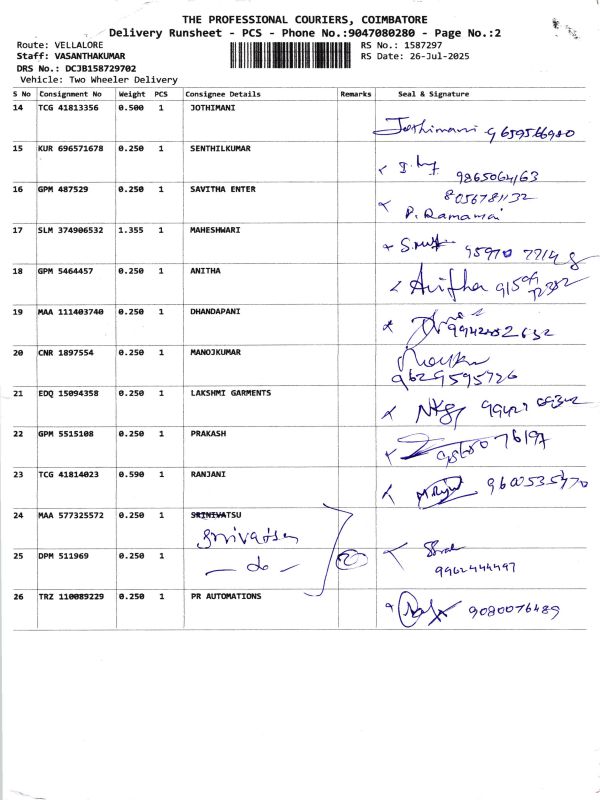 THE PROFESSIONAL COURIERS, COIMBATORE
Delivery Runsheet - PCS - Phone No.:9047080280 - Page No.:2
Route: VELLALORE RS No.: 1587297
Staff: VASANTHAKUMAR RS Date: 26-Jul-2025
DRS No.: DCJB158729702
Vehicle: Two Wheeler Delivery
S No Consignment No Weight PCS Consignee Details Remarks Seal & Signature
14 TCG 41813356 0.500 1 JOTHIMANI
Jothimani 9659566980
15 KUR 696571678 0.250 1 SENTHILKUMAR
9865064163
16 GPM 487529 0.250 1 SAVITHA ENTER
8056781132
P. Ramamai
17 SLM 374906532 1.355 1 MAHESHWARI
18 GPM 5464457 0.250 1 ANITHA
Anitha
19 MAA 111403740 0.250 1 DHANDAPANI
20 CNR 1897554 0.250 1 MANOJKUMAR
9629595726
21 EDQ 15094358 0.250 1 LAKSHMI GARMENTS
22 GPM 5515108 0.250 1 PRAKASH
23 TCG 41814023 0.590 1 RANJANI
9600535470
24 MAA 577325572 0.250 1 SRINIVATSU
Srivatsu
25 DPM 511969 0.250 1
- do - 2
9962444497
26 TRZ 110089229 0.250 1 PR AUTOMATIONS
9080076489